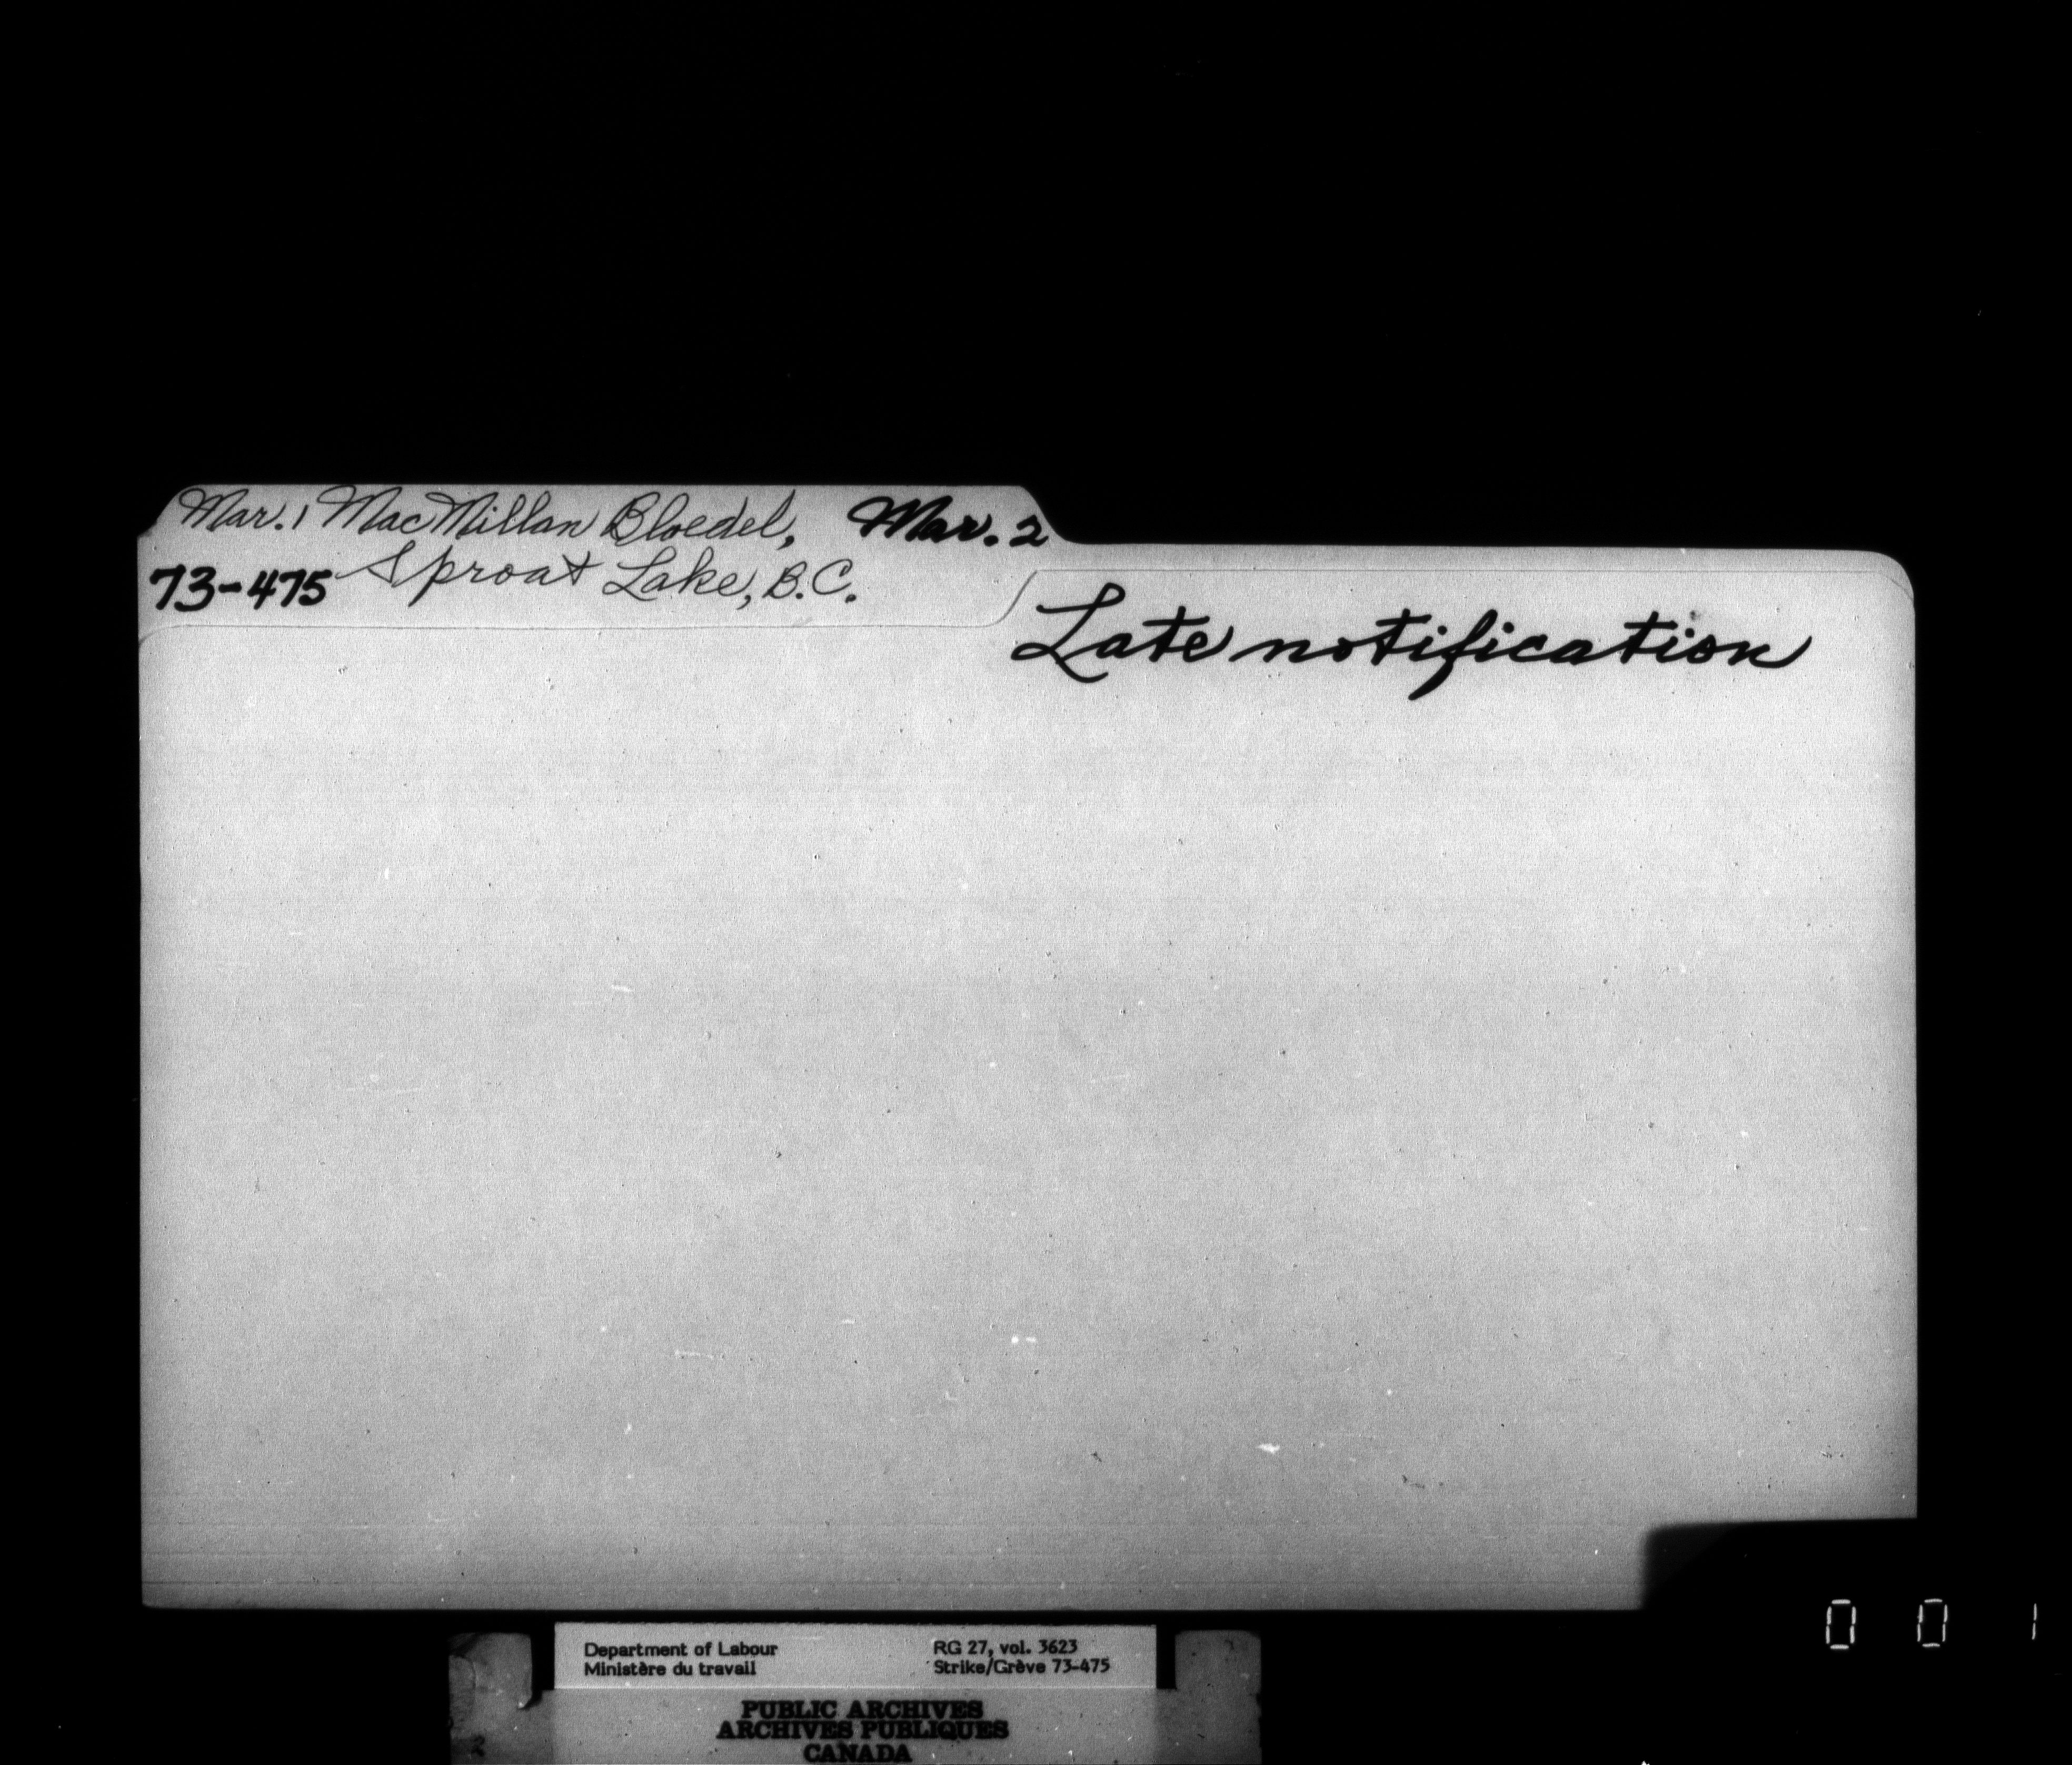 Mar. 1 MacMillan Bloedel, Mar. 2
73-475 Sproat Lake, B.C.
Late notification
Department of Labour RG 27, vol. 3623
Ministère du travail Strike/Grève 73-475
PUBLIC ARCHIVES
ARCHIVES PUBLIQUES
CANADA
2
0 0 1